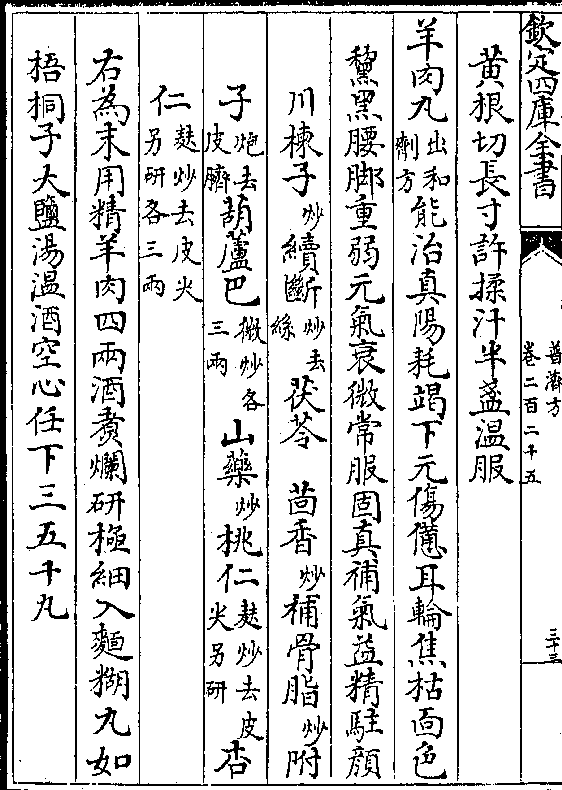 欽定四庫全書
普濟方
卷二百二十五
三十三
黄根切長寸許揉汁半盞温服
羊肉丸出和劑方能治真陽耗竭下元傷憊耳輪焦枯面色
黧黑腰脚重弱元氣衰微常服固真補氣益精駐顔
川楝子炒續斷炒去絲茯苓 茴香炒補骨脂炒附
子炮去皮臍葫蘆巴微炒各三兩山藥炒桃仁麩炒去皮尖另研杏
仁麩炒去皮尖另研各三兩
右為末用精羊肉四兩酒煮爛研極細入麵糊丸如
梧桐子大鹽湯温酒空心任下三五十丸